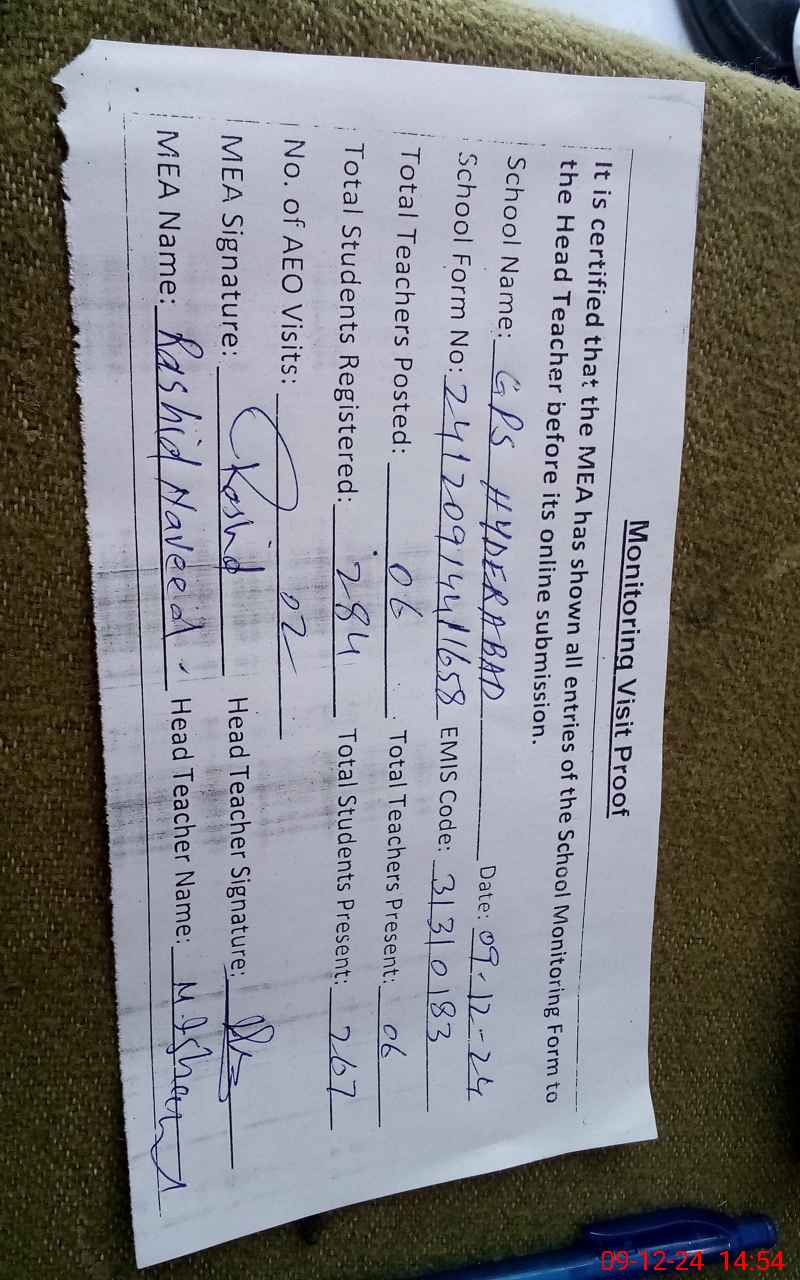 Monitoring Visit Proof
It is certified that the MEA has shown all entries of the School Monitoring Form to
the Head Teacher before its online submission.
School Name: GPS HYDERABAD Date: 09-12-24
School Form No: 2412091441658 EMIS Code: 31310183
Total Teachers Posted: 06 Total Teachers Present: 06
Total Students Registered: 284 Total Students Present: 267
No. of AEO Visits: 02
MEA Signature: Rashid Head Teacher Signature:
MEA Name: Rashid Naveed. Head Teacher Name:
09-12-24 14:54